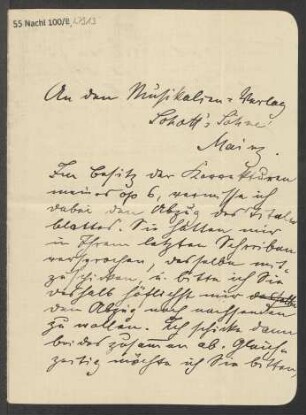 55 Nachl 100/B,
An den Musikalien-Verlag
Schott's Söhne
Mainz.
Im Besitz der Korrekturen
meines op 6, vermisse ich
dabei den Abzug des Titel
blattes. Sie hatten mir
in Ihrem letzten Schreiben
versprochen, denselben mit
zu schicken, u. bitte ich Sie
deshalb höflichst mir
den Abzug noch nachsenden
zu wollen. Ich schicke dann
beides zusammen ab. Gleich-
zeitig möchte ich Sie bitten,